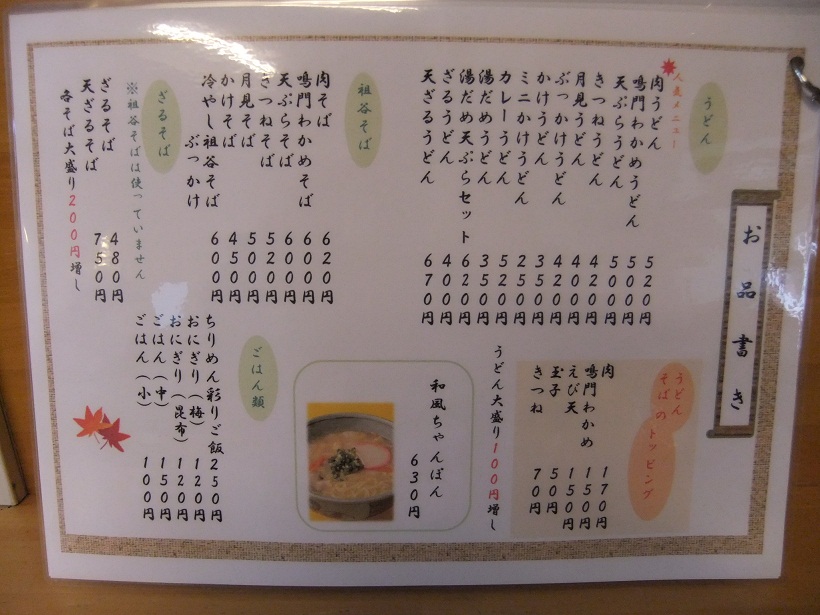 お品書き
うどん
人気メニュー
肉うどん 520円
鳴門わかめうどん 500円
天ぷらうどん 500円
きつねうどん 420円
月見うどん 400円
ぶっかけうどん 420円
かけうどん 350円
ミニかけうどん 250円
カレーうどん 520円
湯だめうどん 350円
湯だめ天ぷらセット 620円
ざるうどん 400円
天ざるうどん 670円
祖谷そば
肉そば 620円
鳴門わかめそば 600円
天ぷらそば 600円
きつねそば 520円
月見そば 500円
かけそば 450円
冷やし祖谷そば
ぶっかけ 600円
ざるそば
※祖谷そばは使っていません
ざるそば 480円
天ざるそば 750円
各そば大盛り200円増し
うどん
そばのトッピング
肉 170円
鳴門わかめ 150円
えび天 150円
玉子 50円
きつね 70円
うどん大盛り100円増し
和風ちゃんぽん
630円
ごはん類
ちりめん彩りご飯 250円
おにぎり(梅) 120円
おにぎり(昆布) 120円
ごはん(中) 150円
ごはん(小) 100円